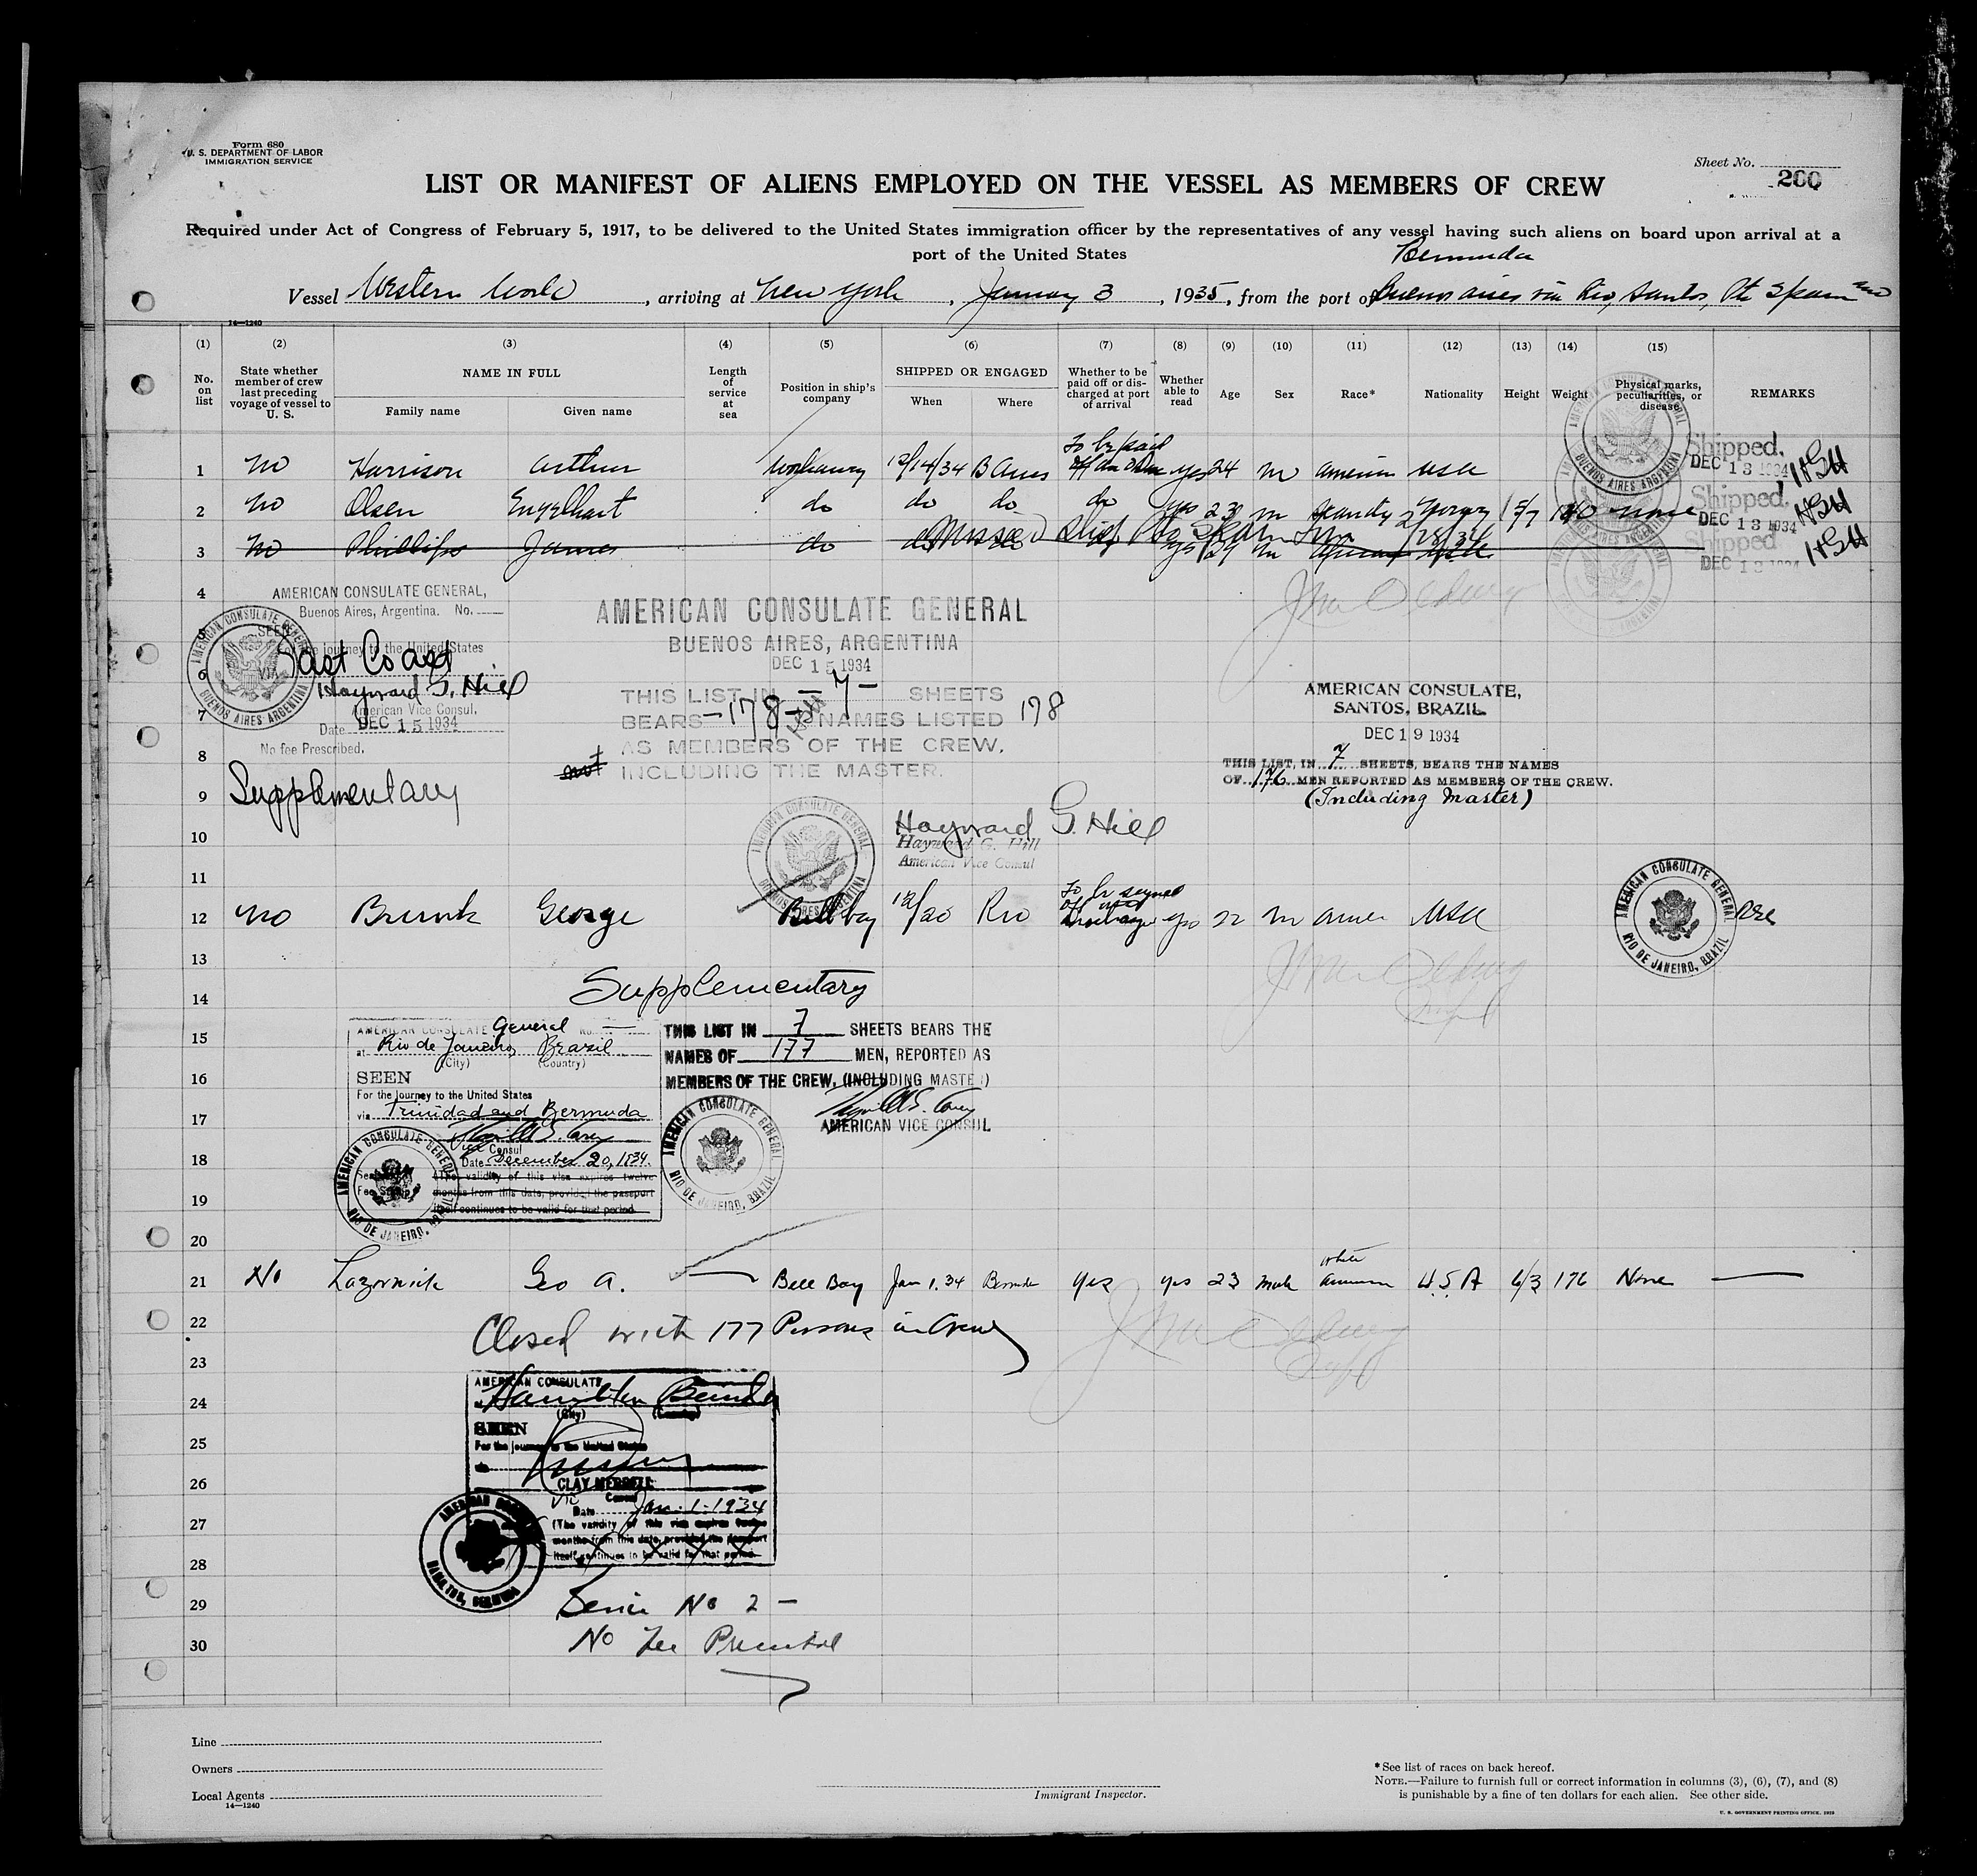 Form 680
U. S. DEPARTMENT OF LABOR
IMMIGRATION SERVICE
Sheet No.
200
LIST OR MANIFEST OF ALIENS EMPLOYED ON THE VESSEL AS MEMBERS OF CREW
Required under Act of Congress of February 5, 1917, to be delivered to the United States immigration officer by the representatives of any vessel having such aliens on board upon arrival at a
port of the United States
Bermuda
Vessel Western World, arriving at New York, January 3, 1935, from the port of Buenos aires via Rio, Santos, Pt. Spain and
14—1240
(1) (2) (3) (4) (5) (6) (7) (8) (9) (10) (11) (12) (13) (14) (15)
No. on list
State whether member of crew last preceding voyage of vessel to U. S.
NAME IN FULL
Family name
Given name
Length of service at sea
Position in ship's company
SHIPPED OR ENGAGED
When
Where
Whether to be paid off or discharged at port of arrival
Whether able to read
Age
Sex
Race*
Nationality
Height
Weight
Physical marks, peculiarities, or disease
REMARKS
1 No Harrison Arthur 12/14/34 B Aires To be paid off yes 24 m USA Shipped. DEC 13 1934 HGH
2 No Olsen Engelhart do do do do yes m 5/7 none Shipped. DEC 13 1934 HGH
3 No Phillips James do do do yes 29 m USA Shipped DEC 13 1934 HGH
Missed Ship Pt. Spain
4
AMERICAN CONSULATE GENERAL,
Buenos Aires, Argentina. No.
5
SEEN
For the journey to the United States
6
VIA East Coast
Hayward G. Hill
American Vice Consul.
7
Date DEC 15 1934
No fee Prescribed.
AMERICAN CONSULATE GENERAL
BUENOS AIRES, ARGENTINA
AMERICAN CONSULATE GENERAL
BUENOS AIRES, ARGENTINA
DEC 15 1934
THIS LIST IN —7— SHEETS
BEARS —178— NAMES LISTED 178
AS MEMBERS OF THE CREW.
not INCLUDING THE MASTER.
AMERICAN CONSULATE,
SANTOS, BRAZIL
DEC 19 1934
THIS LIST, IN 7 SHEETS, BEARS THE NAMES
OF 176 MEN REPORTED AS MEMBERS OF THE CREW.
(Including Master)
8
9 Supplementary
10
Hayward G. Hill
Hayward G. Hill
American Vice Consul
AMERICAN CONSULATE GENERAL
BUENOS AIRES, ARGENTINA
11
12 No George Bell boy 12/20 Rio To be signed off and discharge yes 22 m Amer USA
AMERICAN CONSULATE GENERAL
RIO DE JANEIRO, BRAZIL
13
14 Supplementary
15
AMERICAN CONSULATE General No. —
at Rio de Janeiro, Brazil
(City) (Country)
16
SEEN
For the journey to the United States
17
via Trinidad and Bermuda
Vice Consul
18
Date December 20, 1934.
19
(The validity of this visa expires twelve
months from this date, provided the passport
itself continues to be valid for that period.
AMERICAN CONSULATE GENERAL
RIO DE JANEIRO, BRAZIL
THIS LIST IN 7 SHEETS BEARS THE
NAMES OF 177 MEN, REPORTED AS
MEMBERS OF THE CREW, (INCLUDING MASTER)
AMERICAN VICE CONSUL
AMERICAN CONSULATE GENERAL
RIO DE JANEIRO, BRAZIL
20
21 No Lazornick Geo A. — Bell Boy Jan 1. 34 Bermuda Yes yes 23 Male White American U.S.A 6/3 176 None —
22 Closed with 177 Persons in Crew
23
24
AMERICAN CONSULATE
at Hamilton Bermuda
(City) (Country)
25
SEEN
For the journey to the United States
26
via
CLAY MERRELL
Vice Consul
27
Date Jan. 1. 1934
(The validity of this visa expires twelve
months from this date, provided the passport
28
itself continues to be valid for that period.
AMERICAN CONSULATE
HAMILTON, BERMUDA
29 No 2 —
30 No Fee
Line
Owners
Local Agents
14—1240
Immigrant Inspector.
*See list of races on back hereof.
NOTE.—Failure to furnish full or correct information in columns (3), (6), (7), and (8)
is punishable by a fine of ten dollars for each alien. See other side.
U. S. GOVERNMENT PRINTING OFFICE.